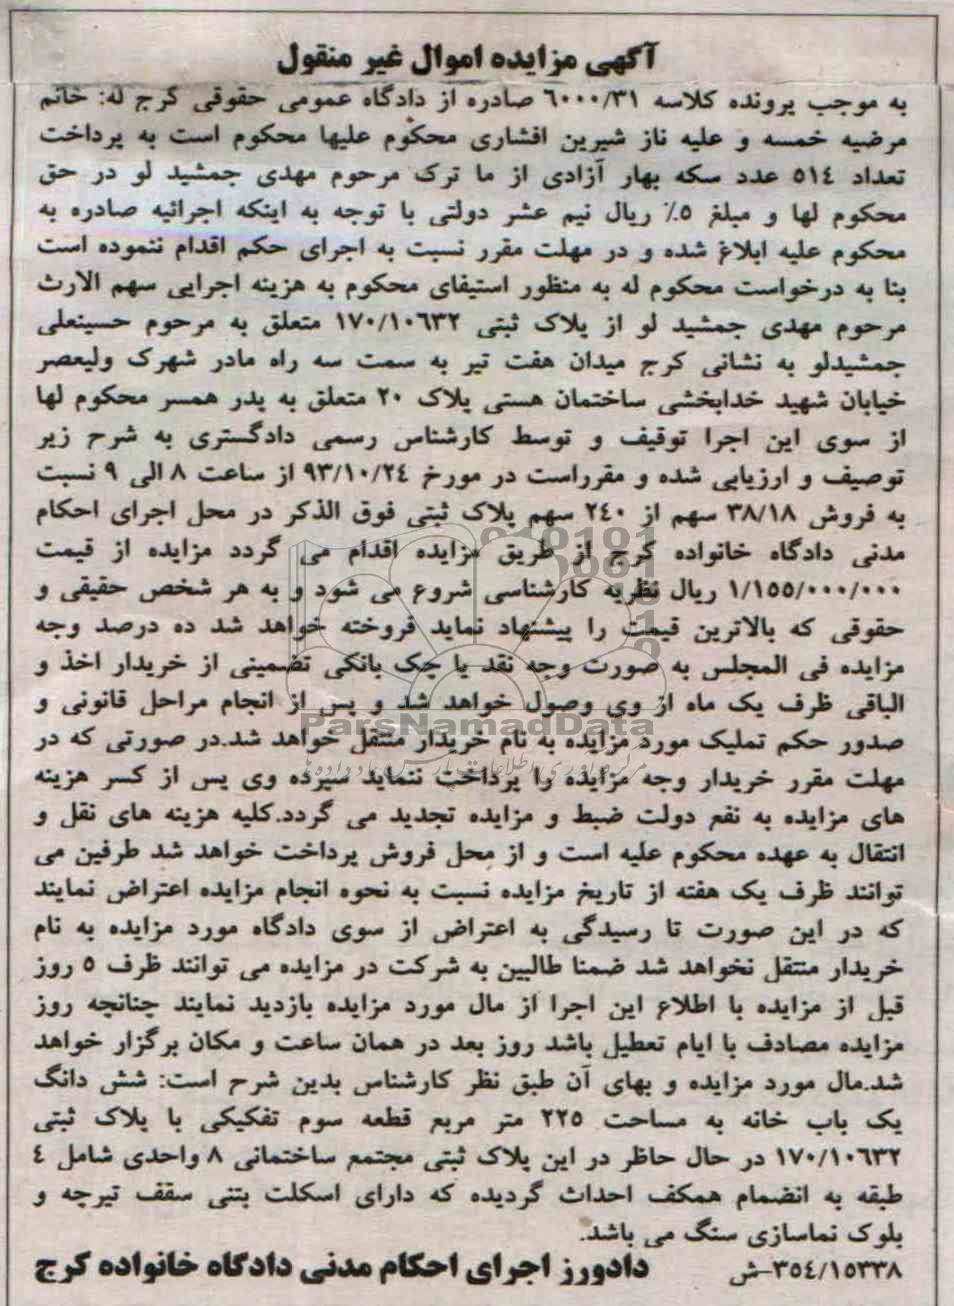 آگهی مزایده اموال غیر منقول
به موجب پرونده کلاسه ٦٠٠٠/٣١ صادره از دادگاه عمومی حقوقی کرج له: خانم
مرضیه خمسه و علیه ناز شیرین افشاری محکوم علیها محکوم است به پرداخت
تعداد ٥١٤ عدد سکه بهار آزادی از ما ترک مرحوم مهدی جمشید لو در حق
محکوم لها و مبلغ ٥٪ ریال نیم عشر دولتی با توجه به اینکه اجرائیه صادره به
محکوم علیه ابلاغ شده و در مهلت مقرر نسبت به اجرای حکم اقدام ننموده است
بنا به درخواست محکوم له به منظور استیفای محکوم به هزینه اجرایی سهم الارث
مرحوم مهدی جمشید لو از پلاک ثبتی ١٧٠/١٠٦٣٢ متعلق به مرحوم حسینعلی
جمشیدلو به نشانی کرج میدان هفت تیر به سمت سه راه مادر شهرک ولیعصر
خیابان شهید خدابخشی ساختمان هستی پلاک ٢٠ متعلق به پدر همسر محکوم لها
از سوی این اجرا توقیف و توسط کارشناس رسمی دادگستری به شرح زیر
توصیف و ارزیابی شده و مقرراست در مورخ ٩٣/١٠/٢٤ از ساعت ٨ الی ٩ نسبت
به فروش ٣٨/١٨ سهم از ٢٤٠ سهم پلاک ثبتی فوق الذکر در محل اجرای احکام
مدنی دادگاه خانواده کرج از طریق مزایده اقدام می گردد مزایده از قیمت
١/١٥٥/٠٠٠/٠٠٠ ریال نظریه کارشناسی شروع می شود و به هر شخص حقیقی و
حقوقی که بالاترین قیمت را پیشنهاد نماید فروخته خواهد شد ده درصد وجه
مزایده فی المجلس به صورت وجه نقد یا چک بانکی تضمینی از خریدار اخذ و
الباقی ظرف یک ماه از وی وصول خواهد شد و پس از انجام مراحل قانونی و
صدور حکم تملیک مورد مزایده به نام خریدار منتقل خواهد شد.در صورتی که در
مهلت مقرر خریدار وجه مزایده را پرداخت ننماید سپرده وی پس از کسر هزینه
های مزایده به نفع دولت ضبط و مزایده تجدید می گردد.کلیه هزینه های نقل و
انتقال به عهده محکوم علیه است و از محل فروش پرداخت خواهد شد طرفین می
توانند ظرف یک هفته از تاریخ مزایده نسبت به نحوه انجام مزایده اعتراض نمایند
که در این صورت تا رسیدگی به اعتراض از سوی دادگاه مورد مزایده به نام
خریدار منتقل نخواهد شد ضمنا طالبین به شرکت در مزایده می توانند ظرف ٥ روز
قبل از مزایده با اطلاع این اجرا از مال مورد مزایده بازدید نمایند چنانچه روز
مزایده مصادف با ایام تعطیل باشد روز بعد در همان ساعت و مکان برگزار خواهد
شد.مال مورد مزایده و بهای آن طبق نظر کارشناس بدین شرح است: شش دانگ
یک باب خانه به مساحت ٢٢٥ متر مربع قطعه سوم تفکیکی با پلاک ثبتی
١٧٠/١٠٦٣٢ در حال حاظر در این پلاک ثبتی مجتمع ساختمانی ٨ واحدی شامل ٤
طبقه به انضمام همکف احداث گردیده که دارای اسکلت بتنی سقف تیرچه و
بلوک نماسازی سنگ می باشد.
٣٥٤/١٥٣٣٨-ش دادورز اجرای احکام مدنی دادگاه خانواده کرج
ParsNamadData